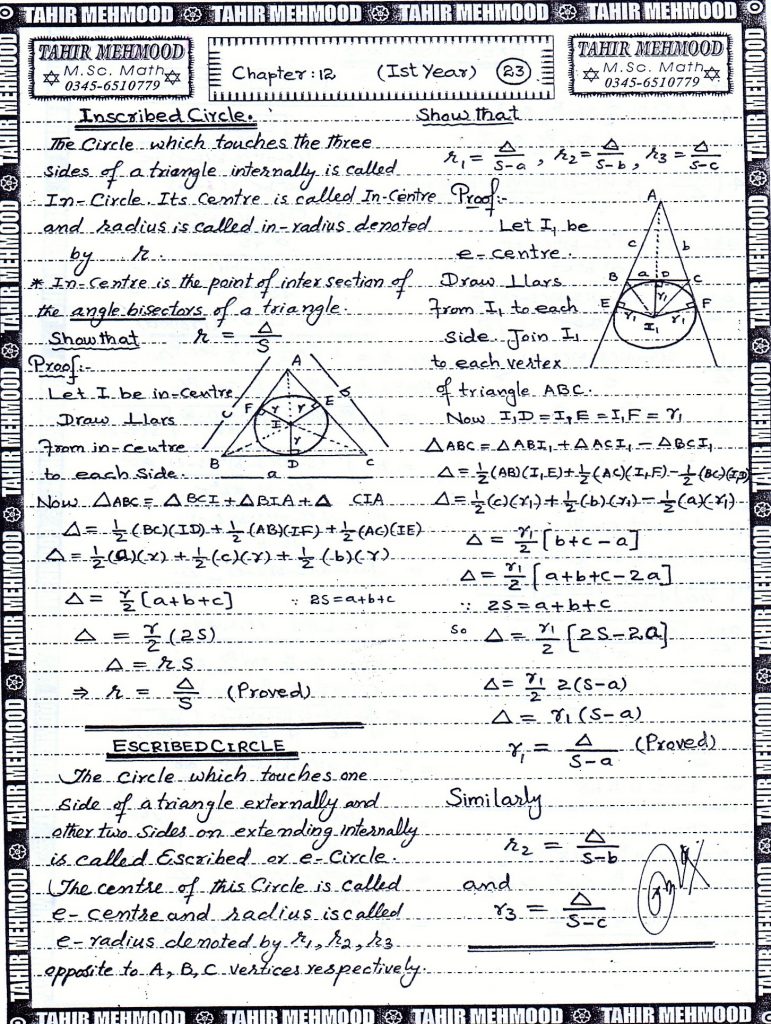 TAHIR MEHMOOD TAHIR MEHMOOD TAHIR MEHMOOD TAHIR MEHMOOD
TAHIR MEHMOOD
M.Sc. Math
0345-6510779
Chapter:12 (Ist Year) 23
TAHIR MEHMOOD
M.Sc. Math
0345-6510779
Inscribed Circle.
The Circle which touches the three
sides of a triangle internally is called
In-Circle. Its Centre is called In-Centre
and radius is called in-radius denoted
by r.
* In-Centre is the point of intersection of
the angle bisectors of a triangle.
Show that r = Δ/S
Proof:-
Let I be in-centre
Draw Llars
From in-centre
to each side.
A
c b
F E
r r
I
r
B D C
a
Now ΔABC = ΔBCI + ΔBIA + Δ CIA
Δ = 1/2 (BC)(ID) + 1/2 (AB)(IF) + 1/2 (AC)(IE)
Δ = 1/2 (a)(r) + 1/2 (c)(r) + 1/2 (b)(r)
Δ = r/2 [a+b+c] ∵ 2S = a+b+c
Δ = r/2 (2S)
Δ = r S
⇒ r = Δ/S (Proved)
ESCRIBED CIRCLE
The circle which touches one
side of a triangle externally and
other two sides on extending internally
is called Escribed or e-Circle.
The centre of this Circle is called
e-centre and radius is called
e-radius denoted by r1, r2, r3
opposite to A, B, C vertices respectively.
Show that
r1 = Δ/S-a , r2 = Δ/S-b , r3 = Δ/S-c
Proof:-
Let I1 be
e-centre.
Draw Llars
From I1 to each
side. Join I1
to each vertex
of triangle ABC.
A
c b
B a D C
E r1 F
r1 I1 r1
Now I1D = I1E = I1F = r1
ΔABC = ΔABI1 + ΔACI1 - ΔBCI1
Δ = 1/2 (AB)(I1E) + 1/2 (AC)(I1F) - 1/2 (BC)(I1D)
Δ = 1/2 (c)(r1) + 1/2 (b)(r1) - 1/2 (a)(r1)
Δ = r1/2 [b+c-a]
Δ = r1/2 [a+b+c-2a]
∵ 2S = a+b+c
So Δ = r1/2 [2S-2a]
Δ = r1/2 2(S-a)
Δ = r1 (S-a)
r1 = Δ/S-a (Proved)
Similarly
r2 = Δ/S-b
and
r3 = Δ/S-c
TAHIR MEHMOOD TAHIR MEHMOOD TAHIR MEHMOOD TAHIR MEHMOOD